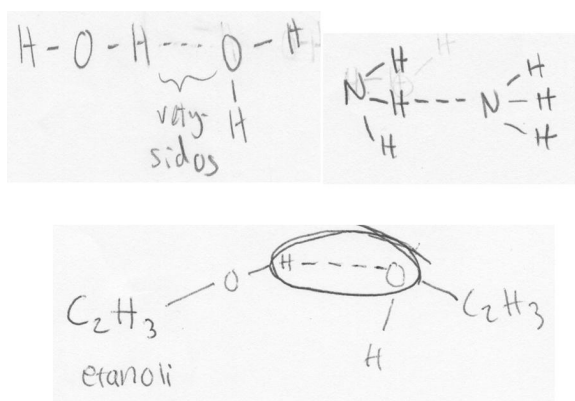 H - O - H ---- O - H
H
vety-
sidos
H
N - H ---- N - H
H
H
H
H
H ---- O
O
C₂H₃
C₂H₃
H
etanoli